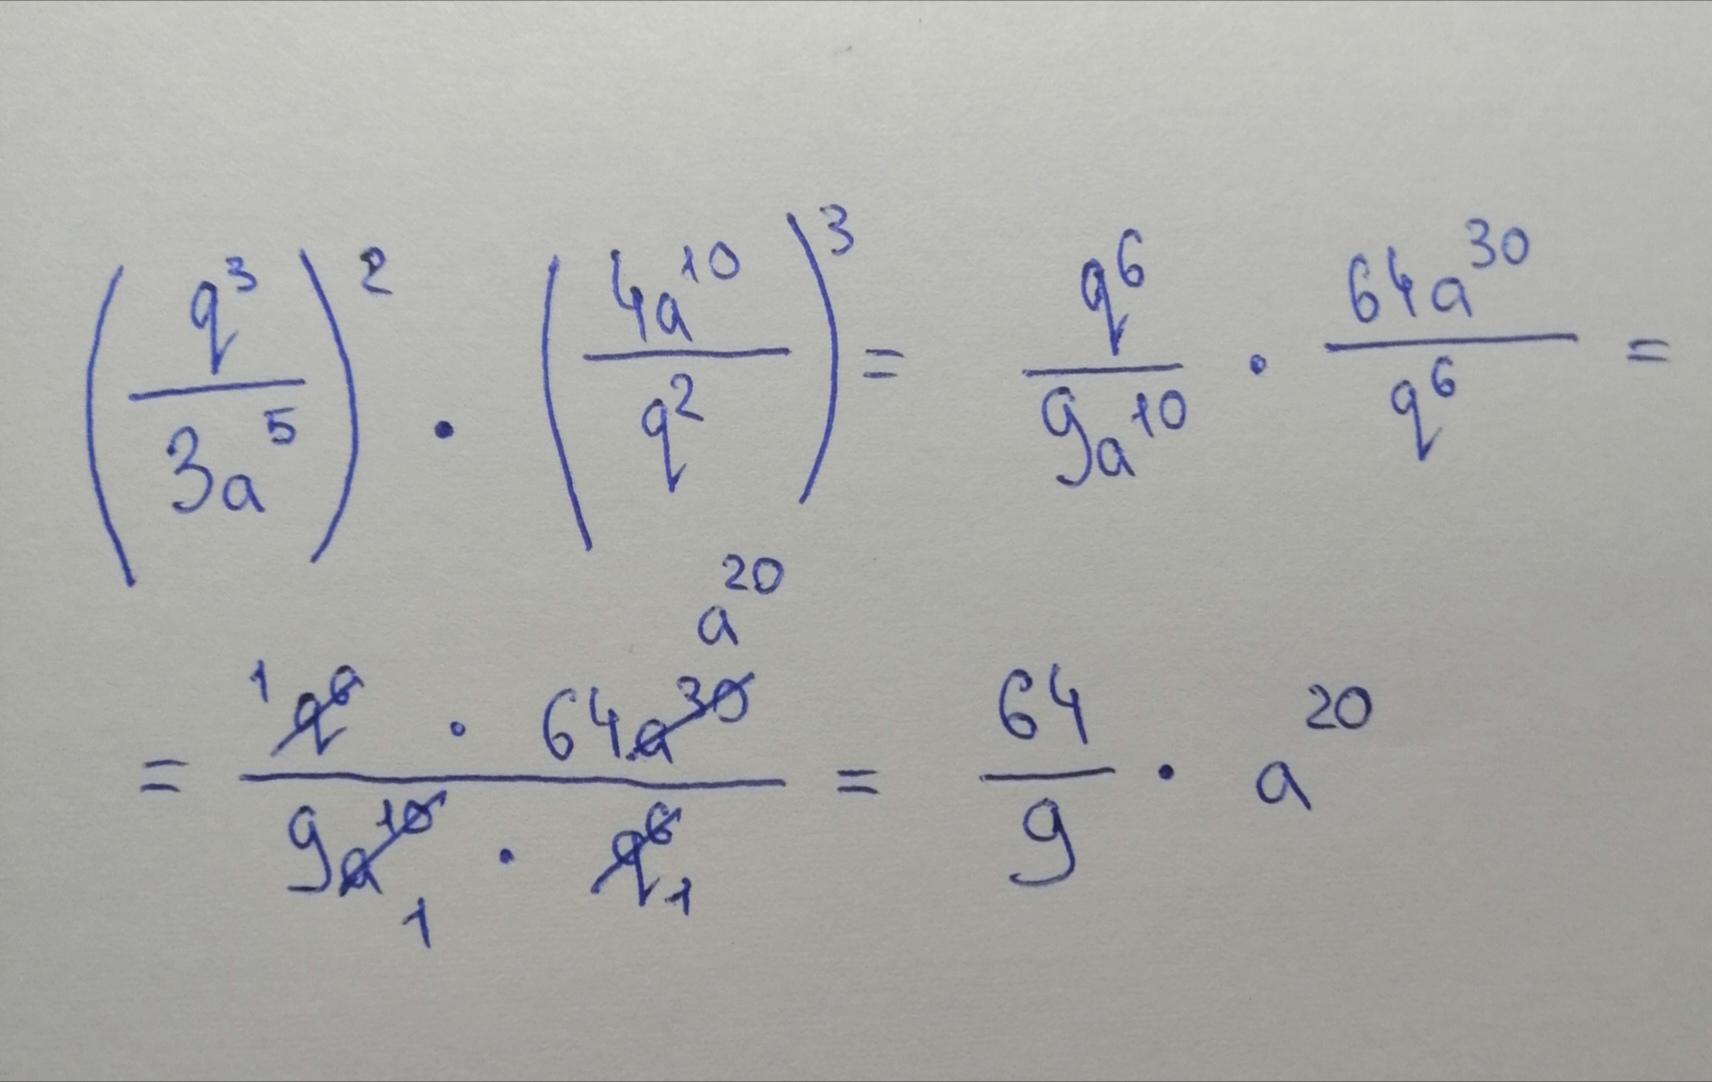 (q³/3a⁵)² · (4a¹⁰/q²)³ = q⁶/9a¹⁰ · 64a³⁰/q⁶ =
a²⁰
= 1 q⁶ · 64a³⁰ / 9a¹⁰ 1 · q⁶ 1 = 64/9 · a²⁰